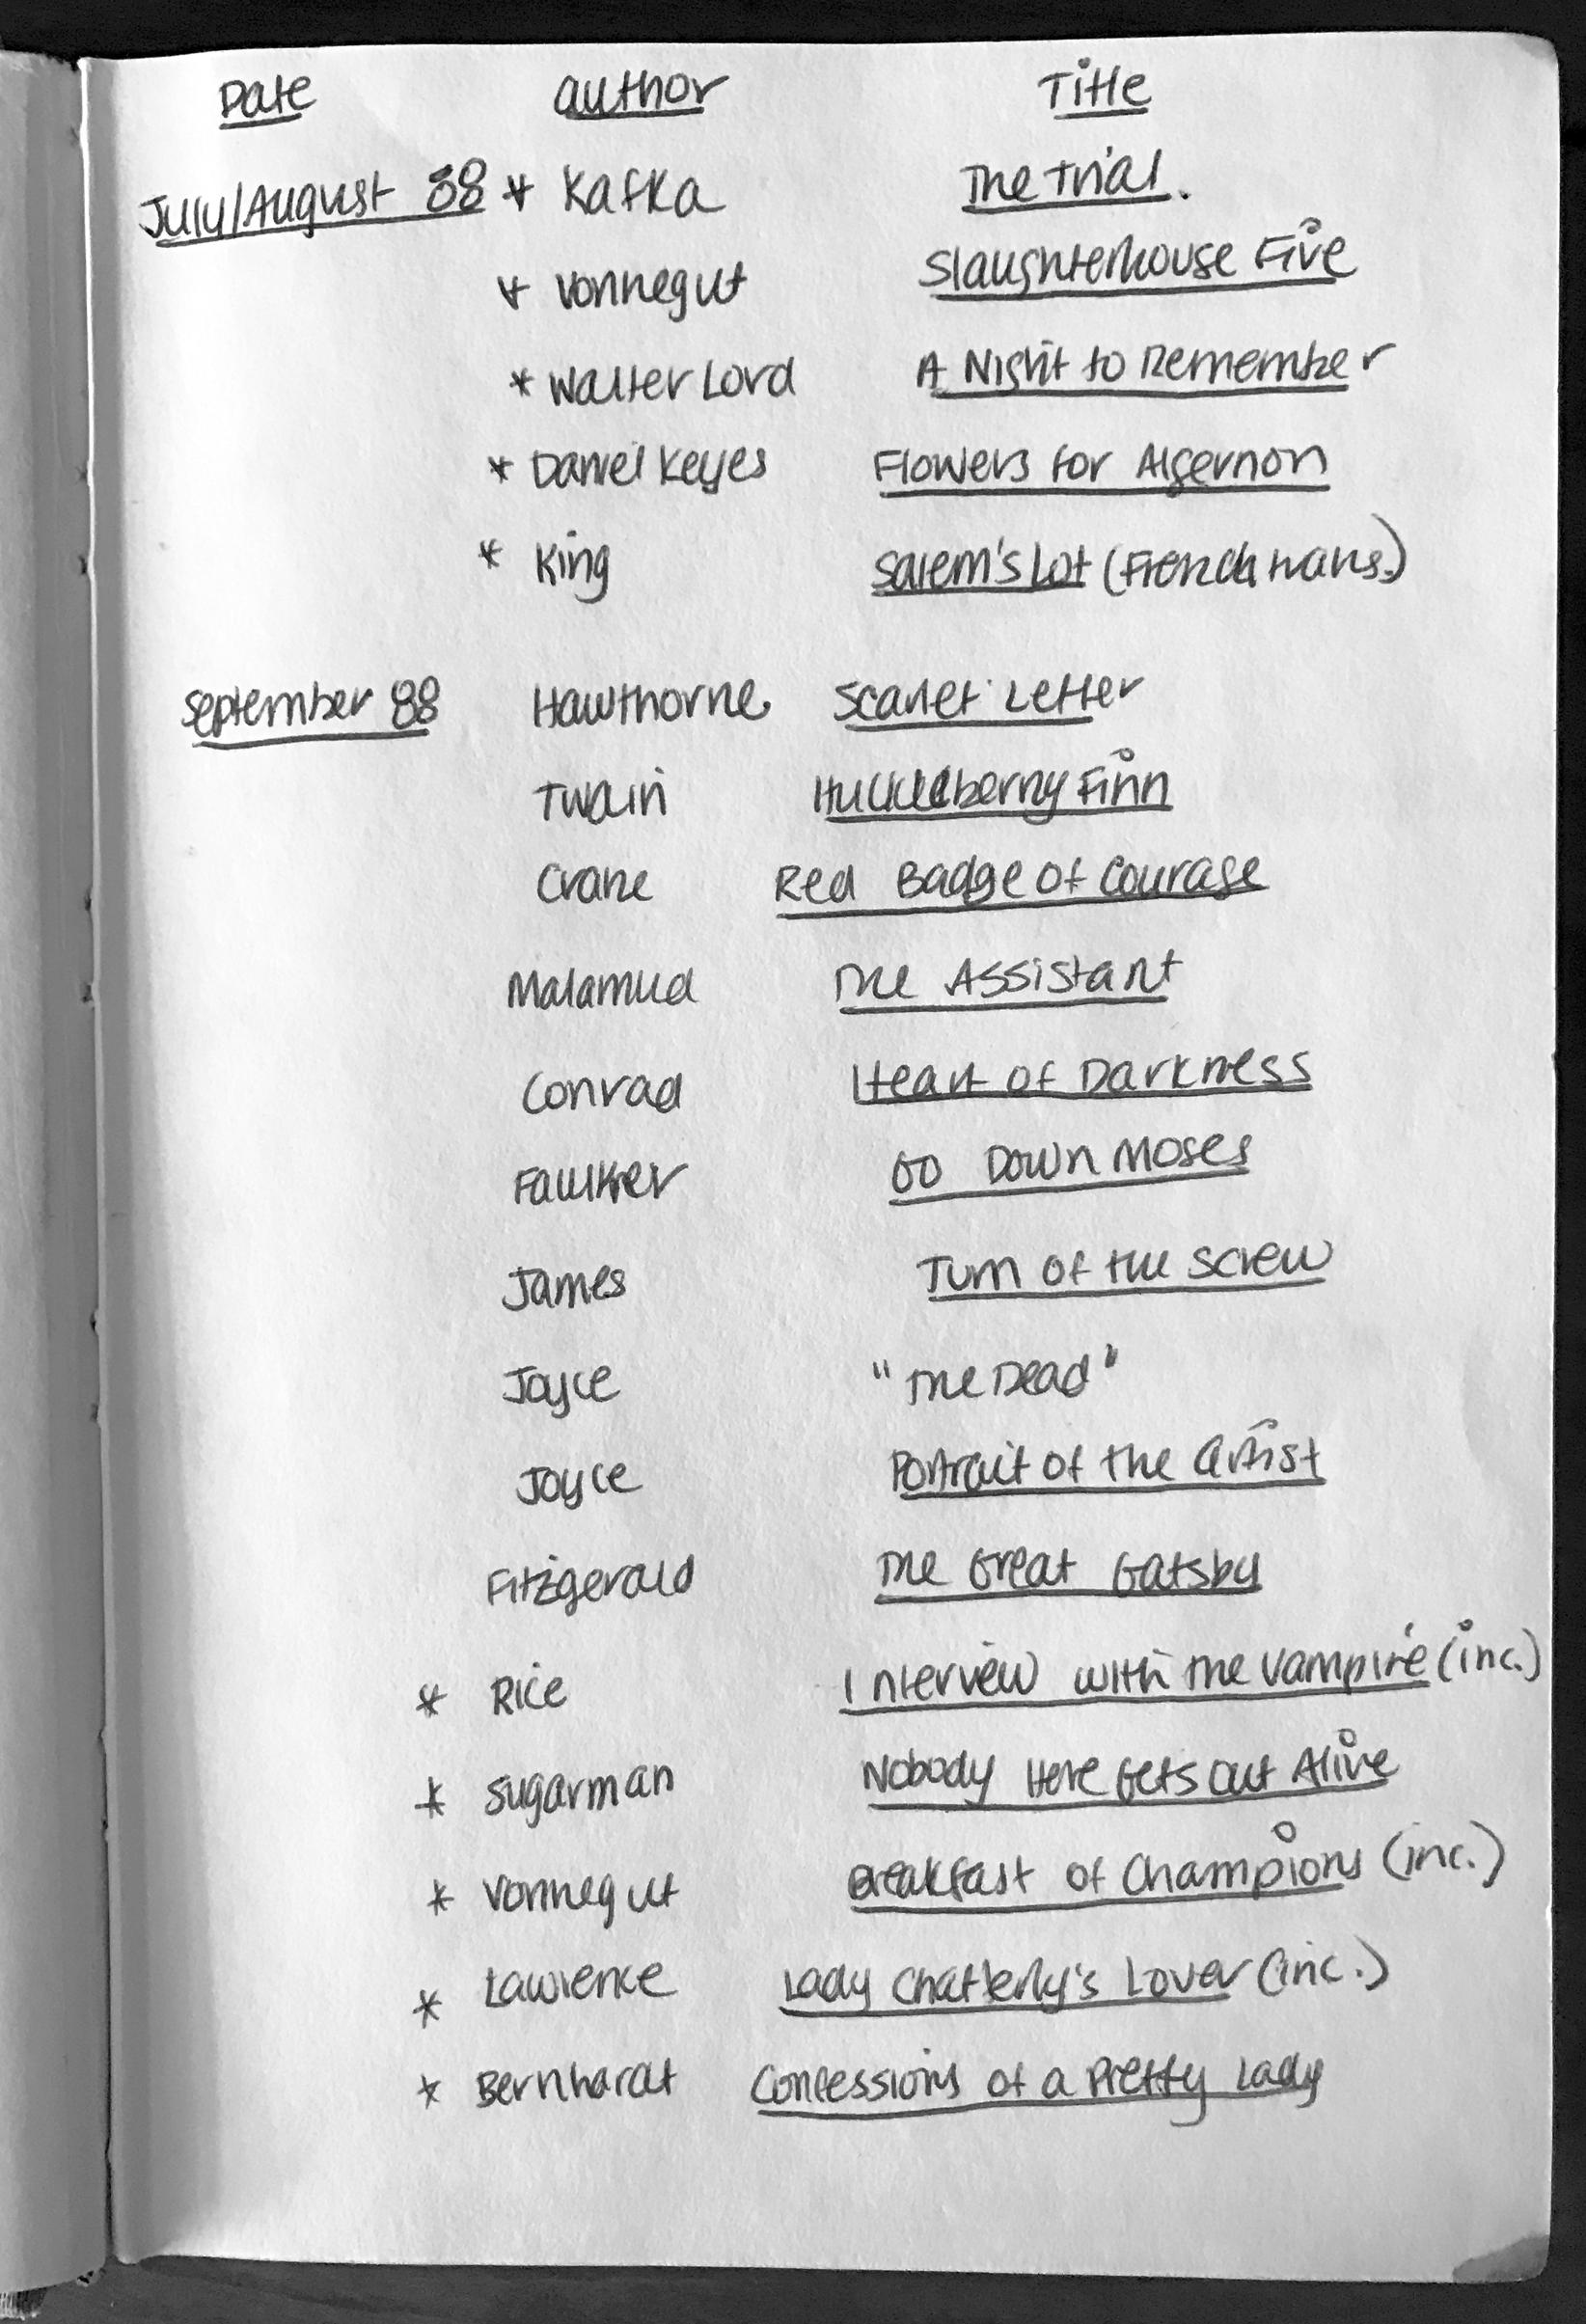 Date author Title
July/August 88 * Kafka The Trial.
* Vonnegut Slaughterhouse Five
* Walter Lord A Night to Remember
* Daniel Keyes Flowers for Algernon
* King Salem's Lot (French trans.)
September 88 Hawthorne Scarlet Letter
Twain Huckleberry Finn
Crane Red Badge of Courage
Malamud The Assistant
Conrad Heart of Darkness
Faulkner Go Down Moses
James Turn of the Screw
Joyce "The Dead"
Joyce Portrait of the Artist
Fitzgerald The Great Gatsby
* Rice Interview with the Vampire (inc.)
* Sugarman Nobody Here Gets Out Alive
* Vonnegut Breakfast of Champions (inc.)
* Lawrence Lady Chatterly's Lover (inc.)
* Bernhardt Confessions of a Pretty Lady